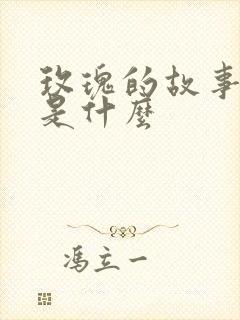 玫瑰的故事
是什麼
馮立一